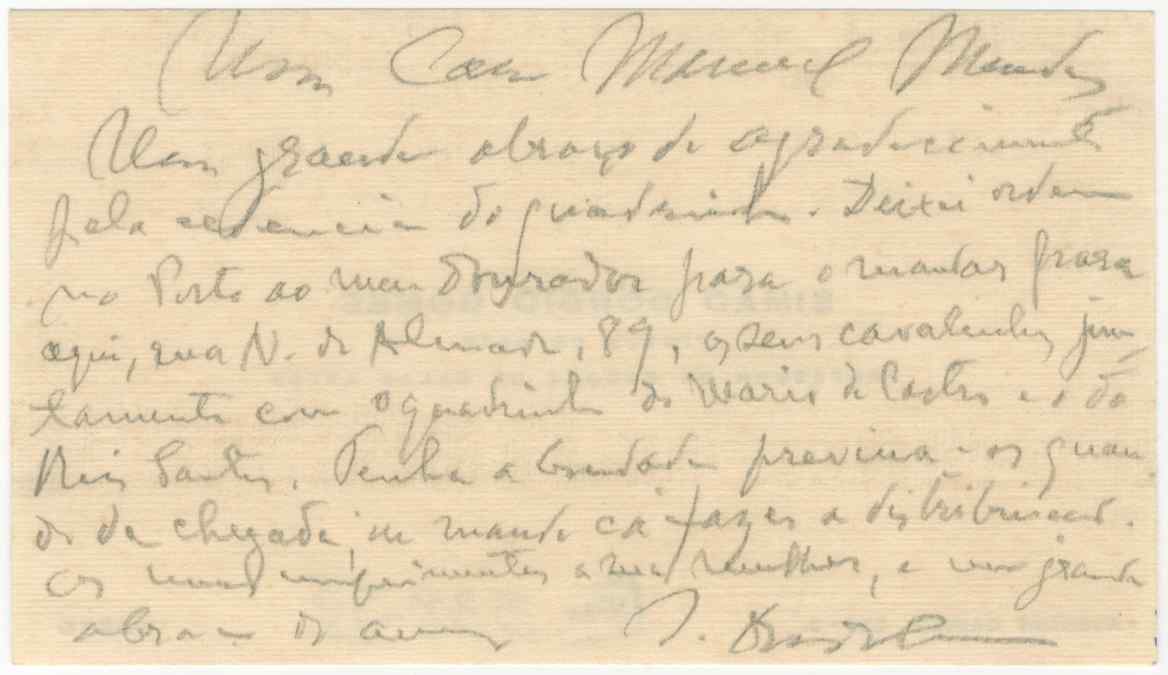 Meu Caro Manuel Mendes
Um grande abraço de agradecimento
pela cedencia do quadrinho. Deixei ordem
no Porto ao meu Dourador para o mandar para
aqui, rua N. de Almada, 89, os seus cavalinhos jun-
tamente com o quadrinho do Mario de Castro e o do
Reis Santos. Tenha a bondade previna-os quan-
do da chegada, e mande cá fazer a distribuição.
Os meus cumprimentos a sua mulher, e um grande
abraço do amigo